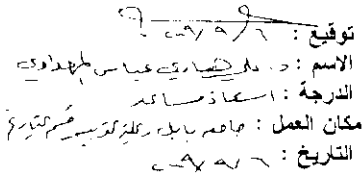 توقيع : ٢٠٠٩/٩/٦
الاسم : د. علي عباس المهداوي
الدرجة : استاذ مساعد
مكان العمل : جامعه بابل / كلية التربيه قسم التاريخ
التاريخ : ٢٠٠٩/٩/٦